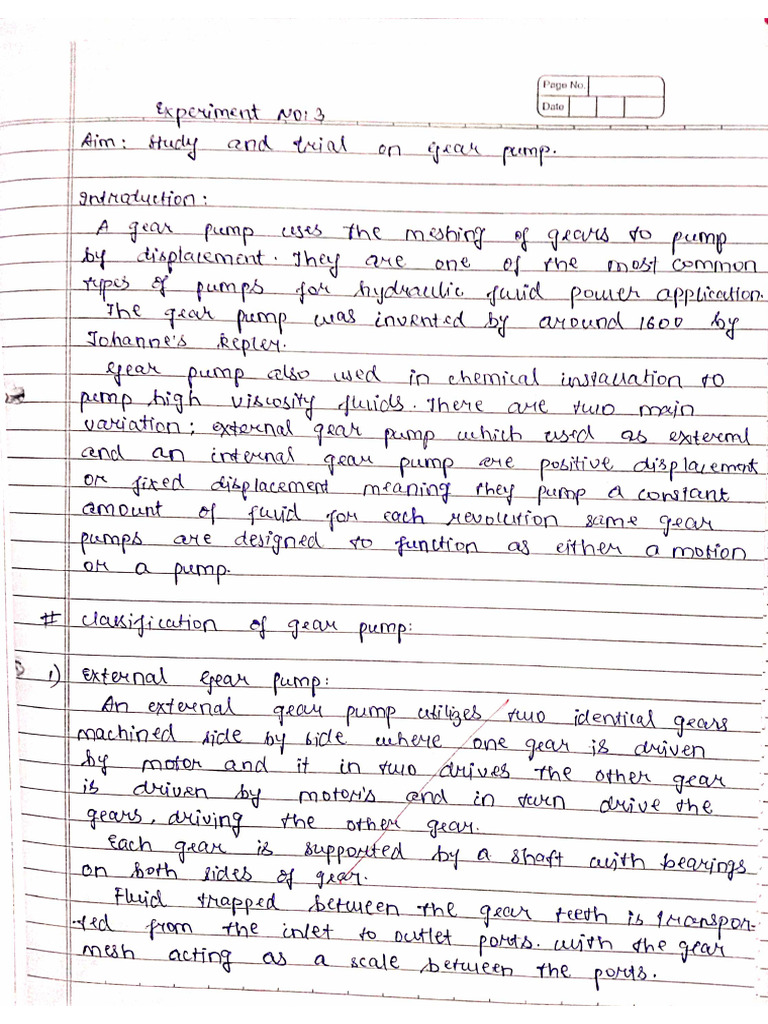 Page No.
Date
Experiment NO: 3
Aim: Study and trial on gear pump.
Introduction:
A gear pump uses the meshing of gears to pump
by displacement. They are one of the most common
types of pumps for hydraulic fluid power application.
The gear pump was invented by around 1600 by
Johanne's Kepler.
Gear pump also used in chemical installation to
pump high viscosity fluids. There are two main
variation; external gear pump which used as external
and an internal gear pump are positive displacement
or fixed displacement meaning they pump a constant
amount of fluid for each revolution same gear
pumps are designed to function as either a motion
or a pump.
# Classification of gear pump:
1) External Gear pump:
An external gear pump utilizes two identical gears
machined side by side where one gear is driven
by motor and it in two drives the other gear
is driven by motor's and in turn drive the
gears, driving the other gear.
Each gear is supported by a shaft with bearings
on both sides of gear.
Fluid trapped between the gear teeth is transpor-
ted from the inlet to outlet ports. with the gear
mesh acting as a scale between the ports.